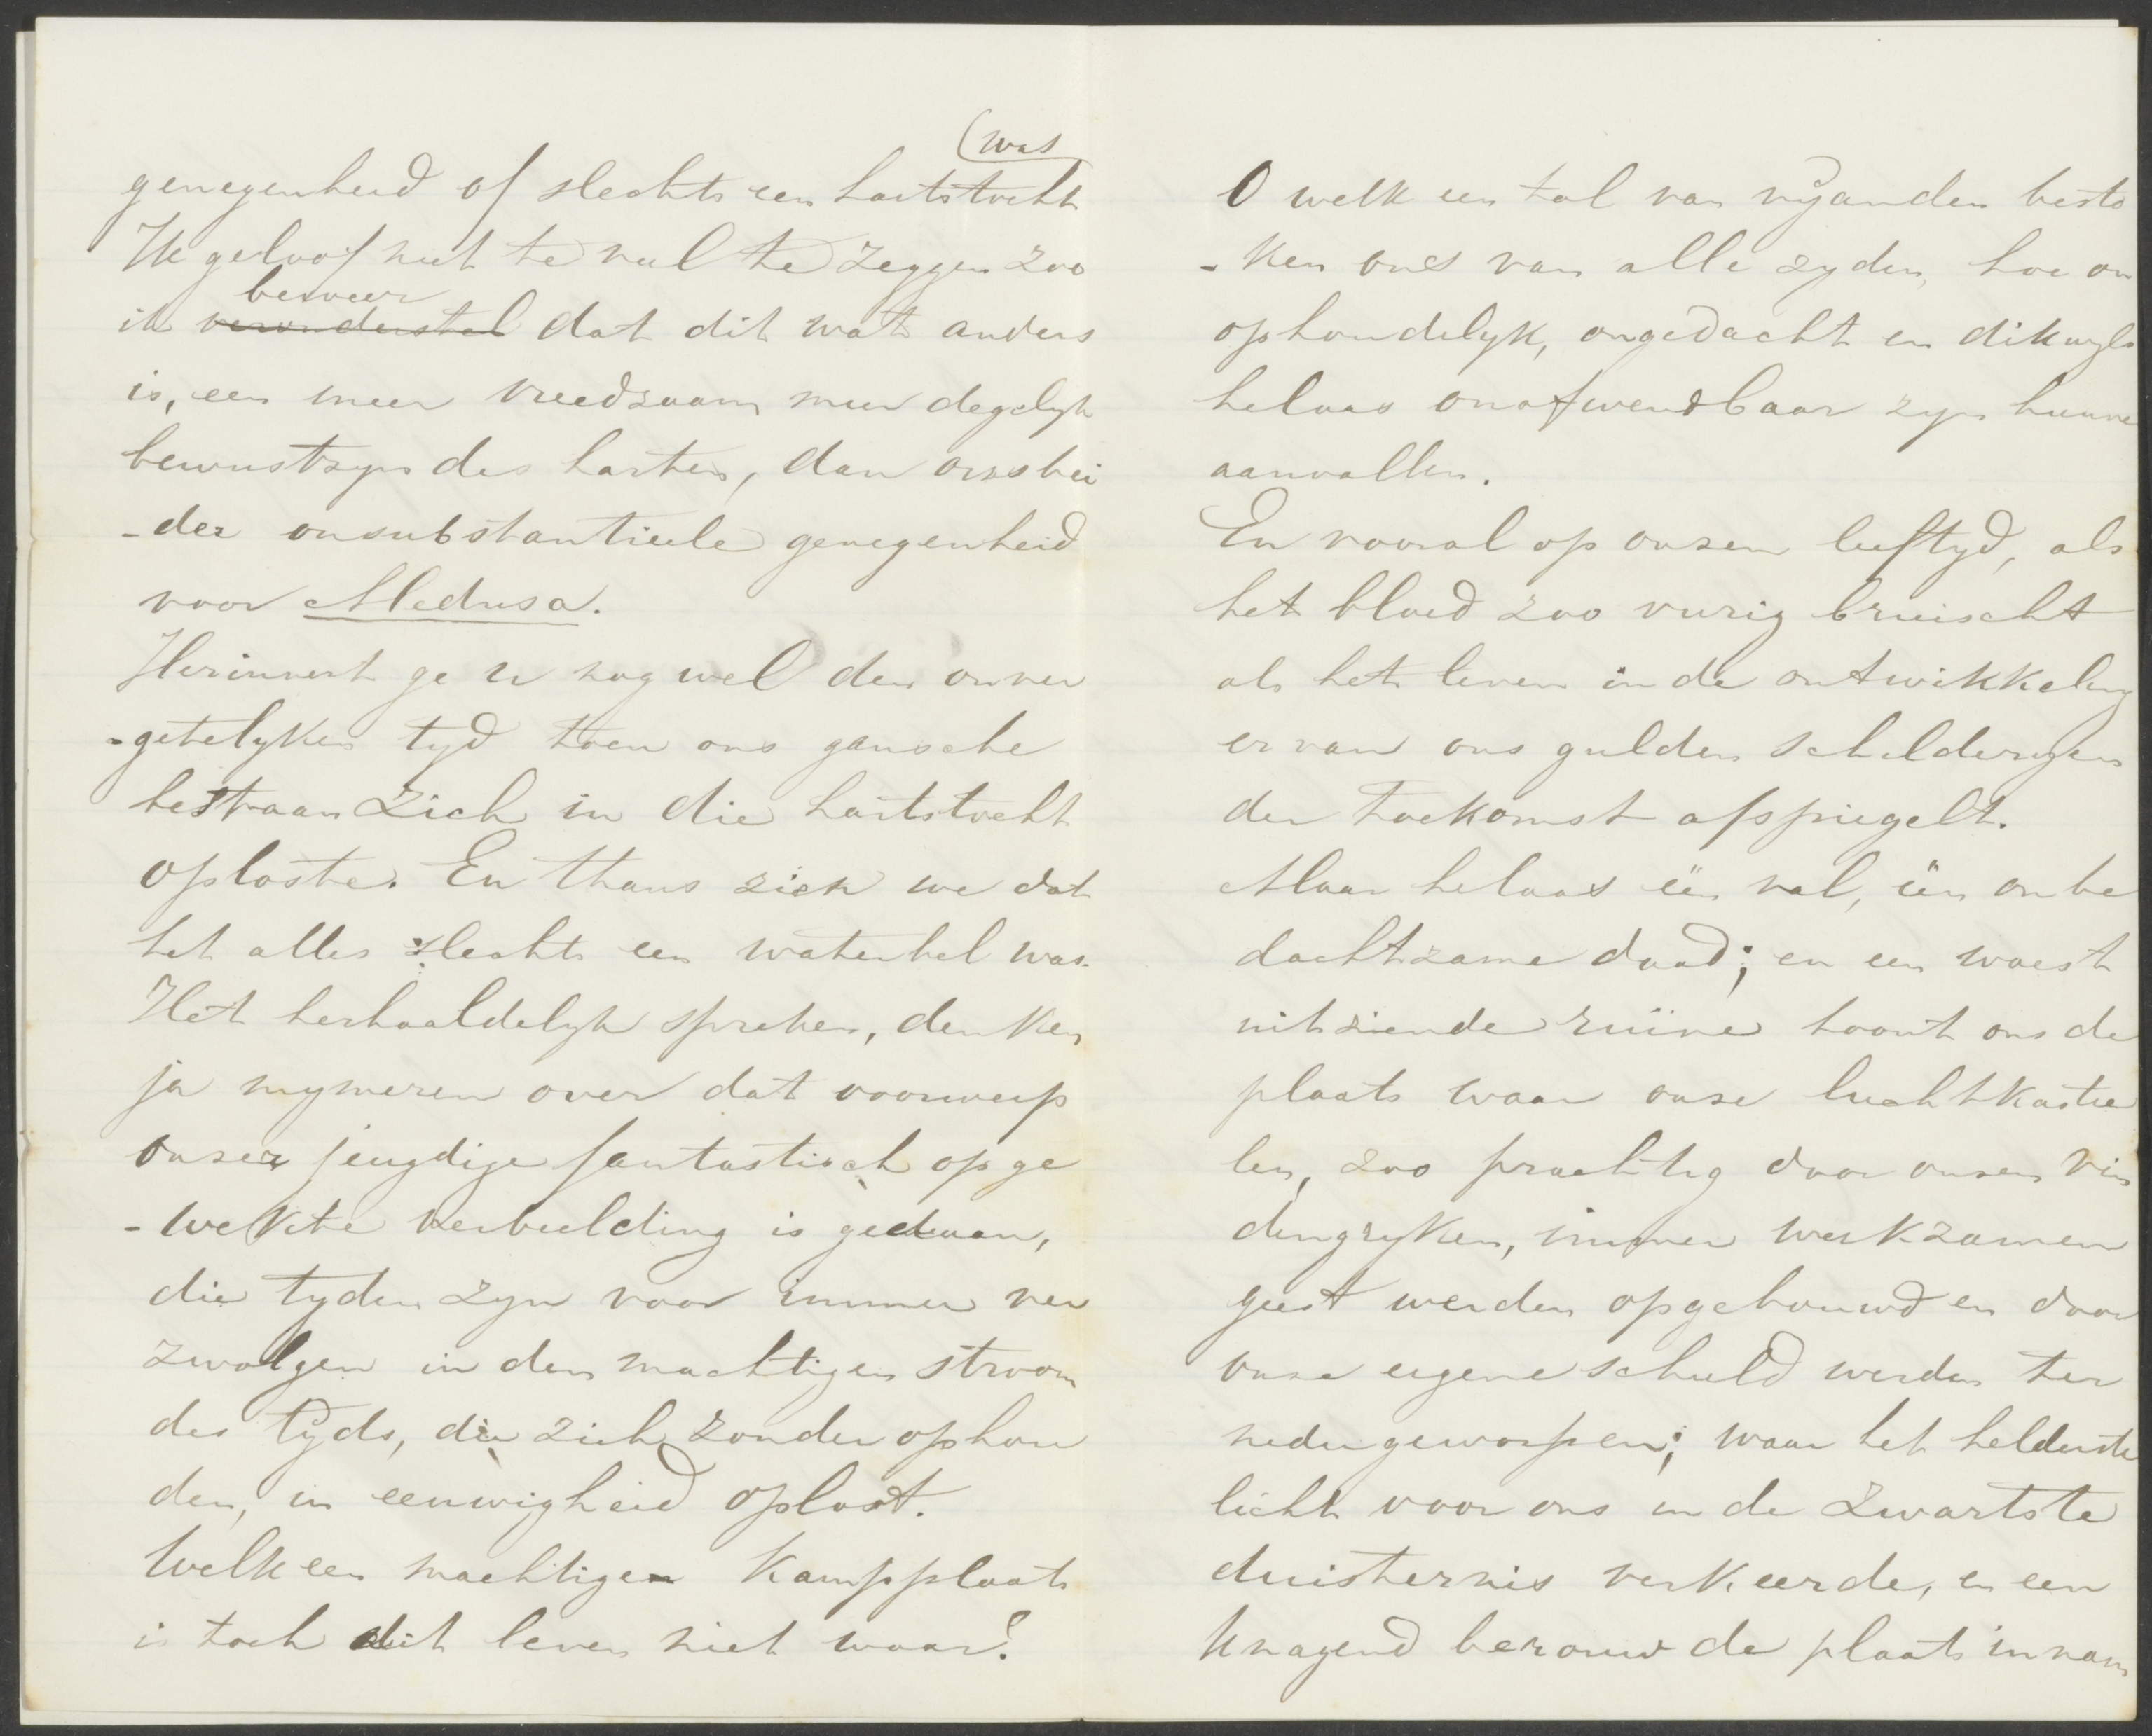 (was
genegenheid of slechts een hartstocht
Ik geloof niet te veel te zeggen zoo
beweer
ik veronderstel dat dit wat anders
is, een meer vreedzaam meer degelyk
bewustzyn des harten, dan onzs bei
-der onsubstantieele genegenheid
voor Medusa.
Herinnert ge u nog wel den onver
-getelyken tyd toen ons gansche
bestaan zich in die hartstocht
oploste. En thans zien we dat
het alles slechts een waterbel was.
Het herhaaldelyk spreken, denken
ja mymeren over dat voorwerp
onzer jeugdige fantastisch opge
-wekte verbeelding is gedaan,
die tyden zyn voor immer ver
zwolgen in den machtigen stroom
des tyds, die zich zonder ophou
den, in eeuwigheid oplost.
Welk een machtige kampplaats
is toch dit leven niet waar?
O welk een tal van vyanden besto
-ken ons van alle zyden, hoe on
ophoudelyk, ongedacht en dikwyls
helaas onafwendbaar zyn hunne
aanvallen.
En vooral op onzen leeftyd, als
het bloed zoo vurig bruischt
als het leven in de ontwikkeling
er van ons gulden schilderyen
der toekomst afspiegelt.
Maar helaas één val, één onbe
dachtzame daad; en een woest
uitziende ruïne toont ons de
plaats waar onze luchtkastee
len, zoo prachtig door onzen vin
dingryken, immer werkzamen
geest werden opgebouwd en door
onze eigene schuld werden ter
nedergeworpen; waar het helderste
licht voor ons in de zwartste
duisternis verkeerde, en een
knagend berouw de plaats innam